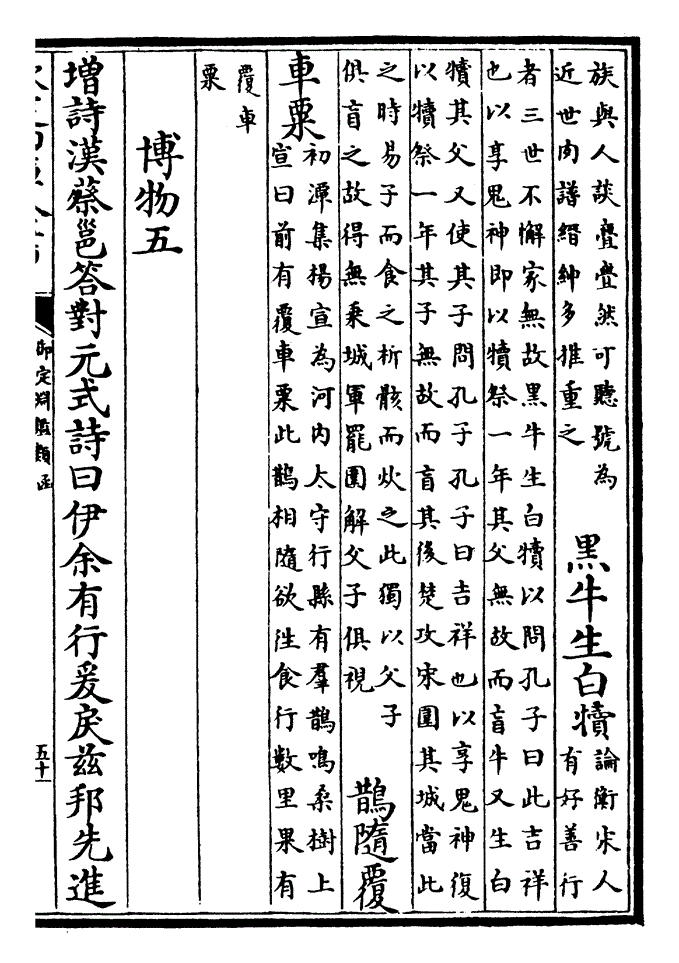 族與人談亹亹然可聽號為
近世肉譜縉紳多推重之
黑牛生白犢
論衡宋人
有好善行
者三世不懈家無故黑牛生白犢以問孔子曰此吉祥
也以享鬼神即以犢祭一年其父無故而盲牛又生白
犢其父又使其子問孔子孔子曰吉祥也以享鬼神復
以犢祭一年其子無故而盲其後楚攻宋圍其城當此
之時易子而食之析骸而炊之此獨以父子
俱盲之故得無乘城軍罷圍解父子俱視
鵲隨覆
車粟
初潭集楊宣為河内太守行縣有羣鵲鳴桑樹上
宣曰前有覆車粟此鵲相隨欲往食行數里果有
覆車
粟
博物五
增詩漢蔡邕答對元式詩曰伊余有行爰戾兹邦先進
御定淵鑑類函
五十一